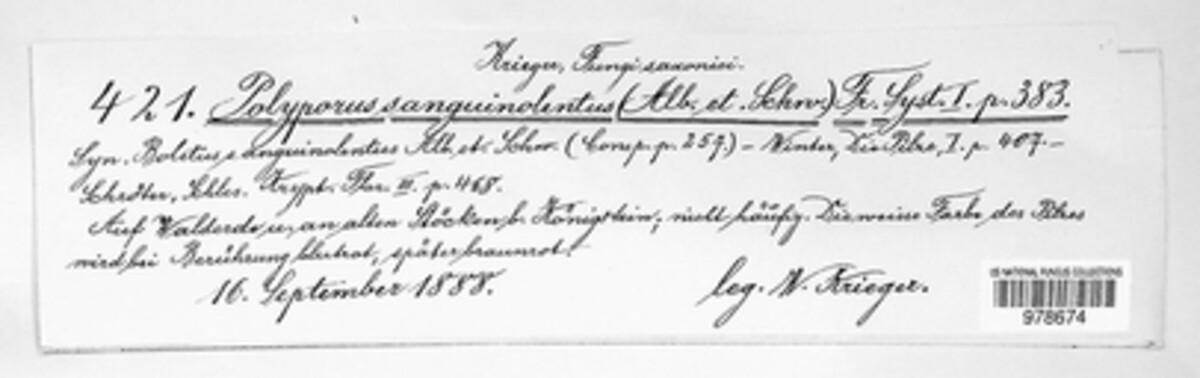 Krieger, Fungi saxonici.
421. Polyporus sanguinolentus (Alb. et. Schw.) Fr. Syst. I. p. 383.
Syn. Boletus sanguinolentus Alb. et. Schw. (Consp. p. 257.) – Winter, Die Pilze, I. p. 407. –
Schröter, Schles. Krypt. Flor. III. p. 468.
Auf Walderde u. an alten Stöcken b. Königstein; nicht häufig. Die weisse Farbe des Pilzes
wird bei Berührung blutrot, später braunrot.
16. September 1888.
leg. W. Krieger.
US NATIONAL FUNGUS COLLECTIONS
978674